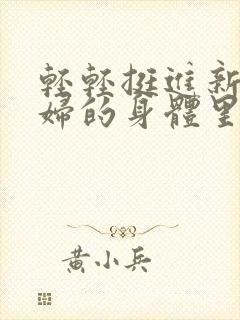 輕輕挺進新
婦的身體里
黃小兵